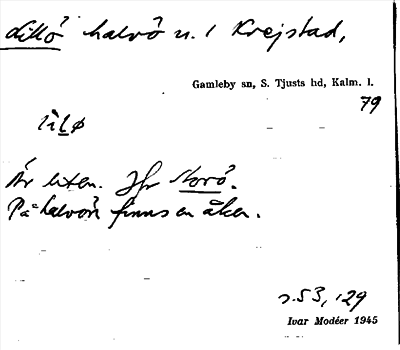 Lillö halvö u. 1 Krejstad,
Gamleby sn, S. Tjusts hd, Kalm. l.
79
lìlø
Är liten. Jfr Storö.
På halvön finns en åker.
s. 53, 129
Ivar Modéer 1945